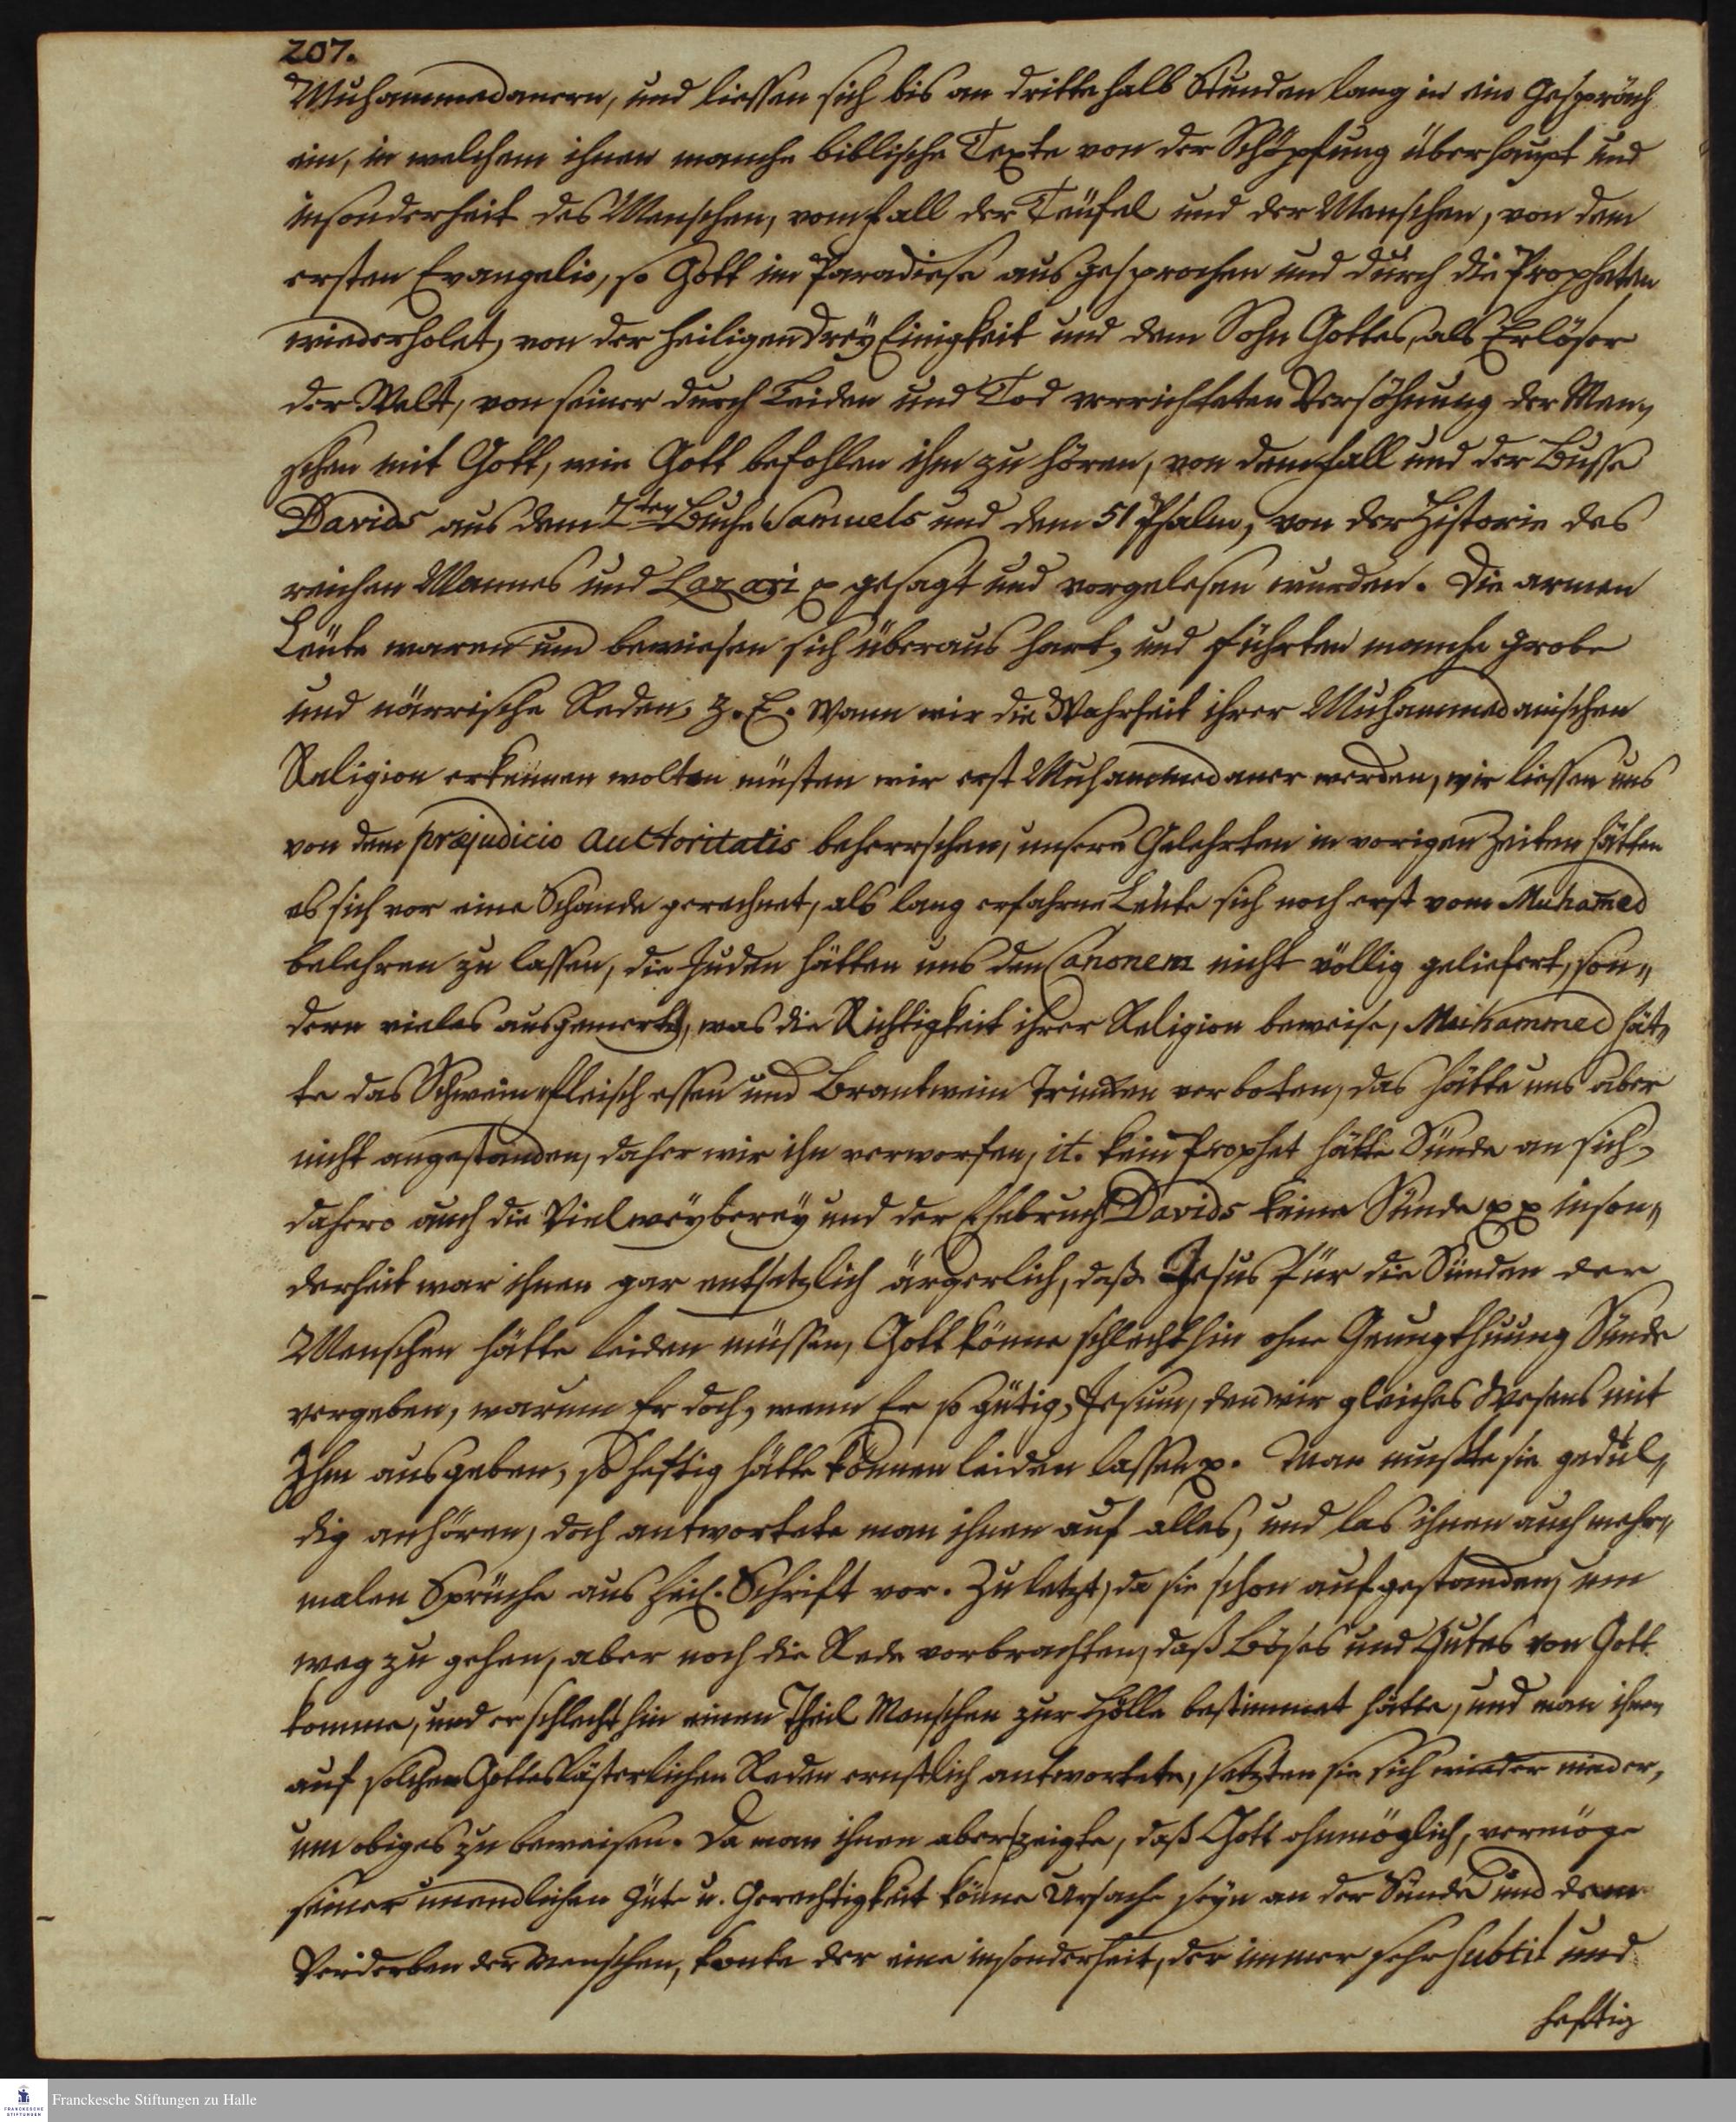 207.
Muhammedanern, und liessen sich bis an dritte halb Stunden lang in ein Gespräch
ein, in welchem ihnen manche biblische Texte von der Schöpfung überhaupt und
insonderheit des Menschen, vom fall der Teüfel und der Menschen, von dem
ersten Evangelio, so Gott im Paradiese ausgesprochen und durch die Propheten
wiederholet, von der heiligen DreyEinigkeit und dem Sohn Gottes, als Erlöser
der Welt, von seiner durch Leiden und Tod verrichteten Versöhnung der Men„
schen mit Gott, wie Gott befohlen ihm zu hören, von dem fall und der Busse
Davids aus dem 2ten Buche Samuels und dem 51 Psalm, von der Historie des
reichen Mannes und Lazari p gesagt und vorgelesen wurden. Die armen
Leüte waren und bewiesen sich überaus hart, und führten manche grobe
und närrische Reden, z. E. Wann wir die Wahrheit ihrer Muhammedanischen
Religion erkennen wolten müsten wir erst Muhammedaner werden, wir liessen uns
von dem præjudicio auctoritatis beherrschen, unsere Gelehrten in vorigen Zeiten hätten
es sich vor eine Schande gerechnet, als lang erfahrne Leüte sich noch erst vom Muham̅ed
belehren zu lassen, die Juden hätten uns den Canonem nicht völlig geliefert, son„
dern vieles ausgemerkt, was die Richtigkeit ihrer Religion beweise, Muhammed hät„
te das Schwein„fleisch essen und Brantwein Trincken verboten, das hätte uns aber
nicht angestanden, daher wir ihn verworfen, it. kein Prophet hätte Sünde an sich,
dahero auch die Vielweyberey und der Ehebruch Davids keine Sünde pp inson„
derheit war ihnen gar entsetzlich ärgerlich, daß Jesus für die Sünden der
Menschen hätte leiden müssen, Gott könne schlechthin ohne Genugthuung Sünde
vergeben, warum Er doch, wenn Er so gütig, Jesum, den wir gleiches Wesens mit
Ihm ausgeben, so heftig hätte können leiden lassen p. Man mußte sie gedul„
dig anhören, doch antwortete man ihnen auf alles, und las ihnen auch mehr„
malen Sprüche aus heil. Schrift vor. Zuletzt, da sie schon aufgestanden, um
weg zu gehen, aber noch die Rede vorbrachten, daß Böses und Gutes von Gott
komme, und er schlechthin einen Theil Menschen zur Hölle bestimmet hätte, und man ihnen
auf solchen Gotteslästerlichen Reden ernstlich antwortete, setzten sie sich wieder nieder,
um obiges zu beweisen. Da man ihnen aber zeigte, daß Gott ohnmöglich, vermöge
seiner unendlichen Güte u. Gerechtigkeit könne Ursache seyn an der Sünde und dem
Verderben der Menschen, konte der eine insonderheit, der immer sehr subtil und
heftig
Franckesche Stiftungen zu Halle